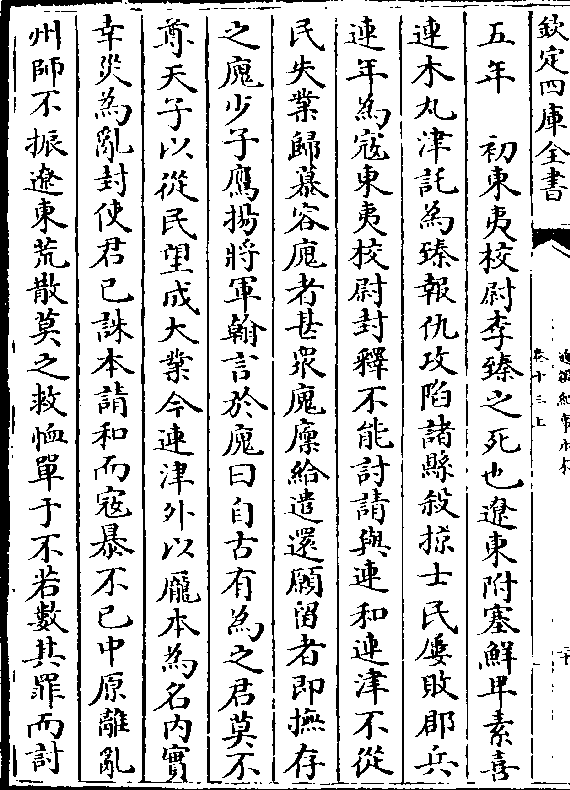 欽定四庫全書
卷十三上
五年 初東夷校尉李臻之死也遼東附塞鮮卑素喜
連木丸津託為臻報仇攻陷諸縣殺掠士民屢敗郡兵
連年為寇東夷校尉封釋不能討請與連和連津不從
民失業歸慕容廆者甚衆廆禀給遣還願留者即撫存
之廆少子鷹揚將軍翰言於廆曰自古有為之君莫不
尊天子以從民望成大業今連津外以龎本為名内實
幸災為亂封使君已誅本請和而寇暴不已中原離亂
州師不振遼東荒散莫之救恤單于不若數其罪而討